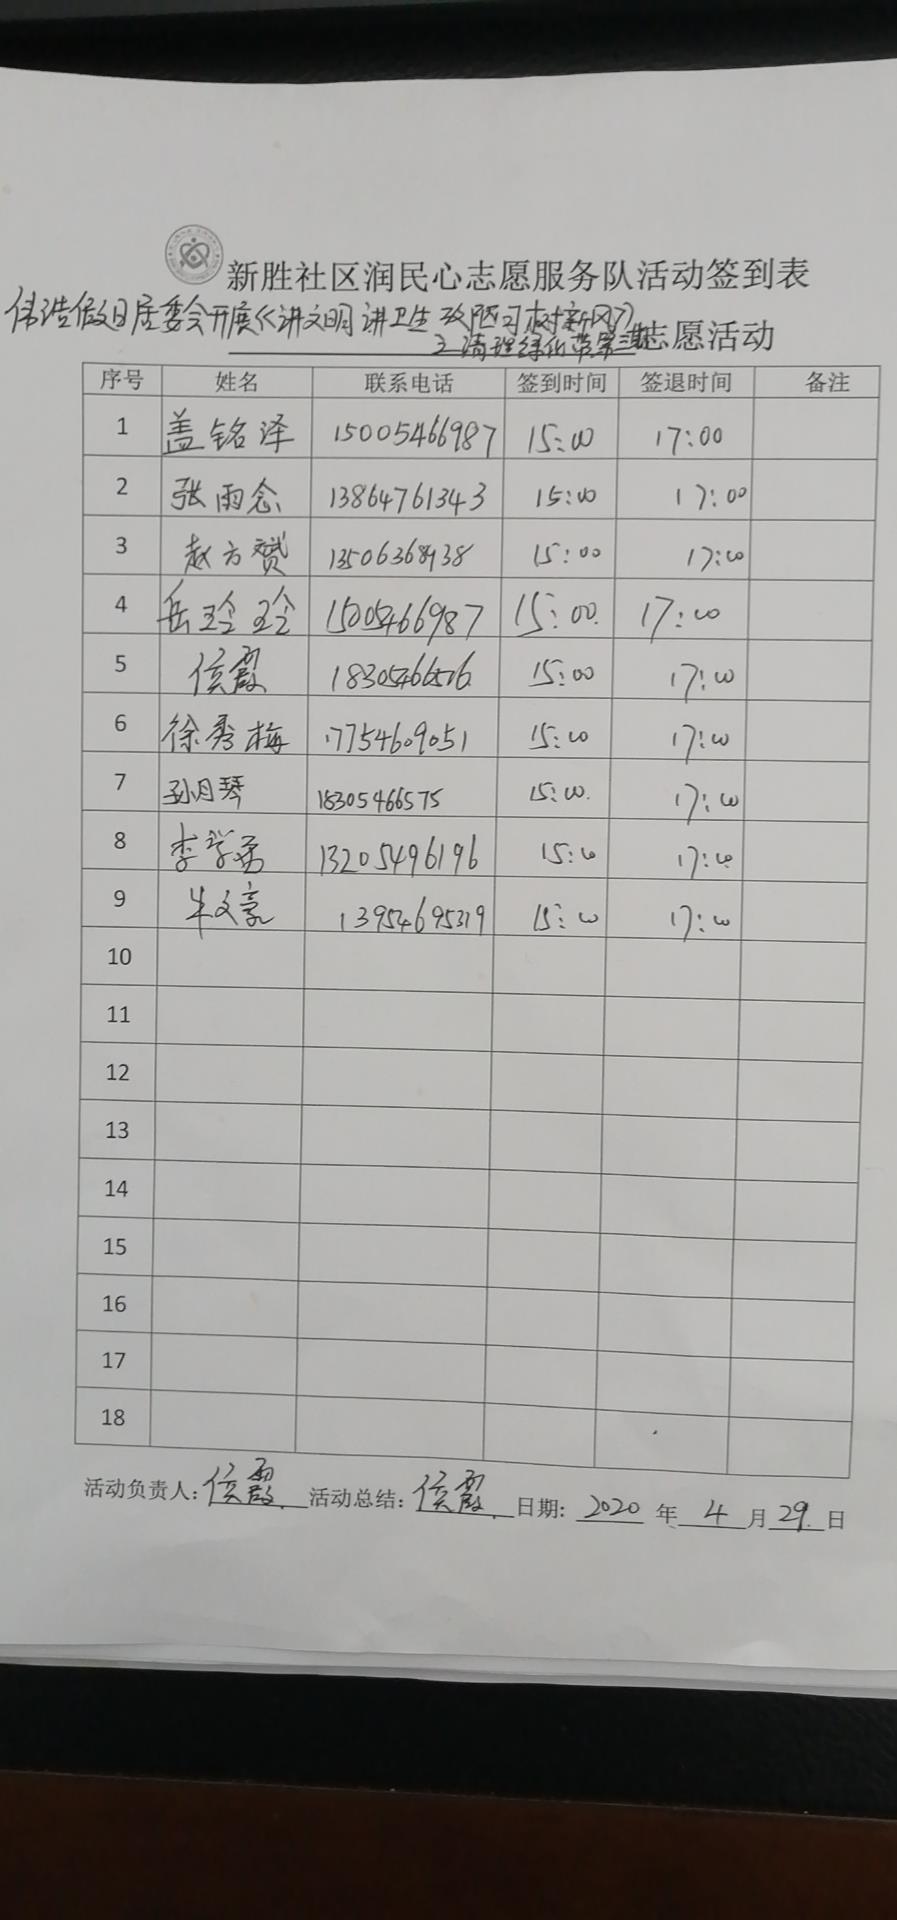 新胜社区润民心志愿服务队活动签到表
伟浩假日居委会开展《讲文明讲卫生改陋习树新风》
之清理绿化带第三期志愿活动
序号 姓名 联系电话 签到时间 签退时间 备注
1 盖铭泽 15005466987 15:00 17:00
2 张雨念 13864761343 15:00 17:00
3 赵方赟 13506368938 15:00 17:00
4 岳玲玲 15005466987 15:00 17:00
5 侯霞 15:00 17:00
6 徐秀梅 17754609051 15:00 17:00
7 孙月琴 18305466575 15:00 17:00
8 李学 13205496196 15:00 17:00
9 牛文豪 13954695319 15:00 17:00
10
11
12
13
14
15
16
17
18
活动负责人:侯霞 活动总结:侯霞 日期: 2020 年 4 月 29 日